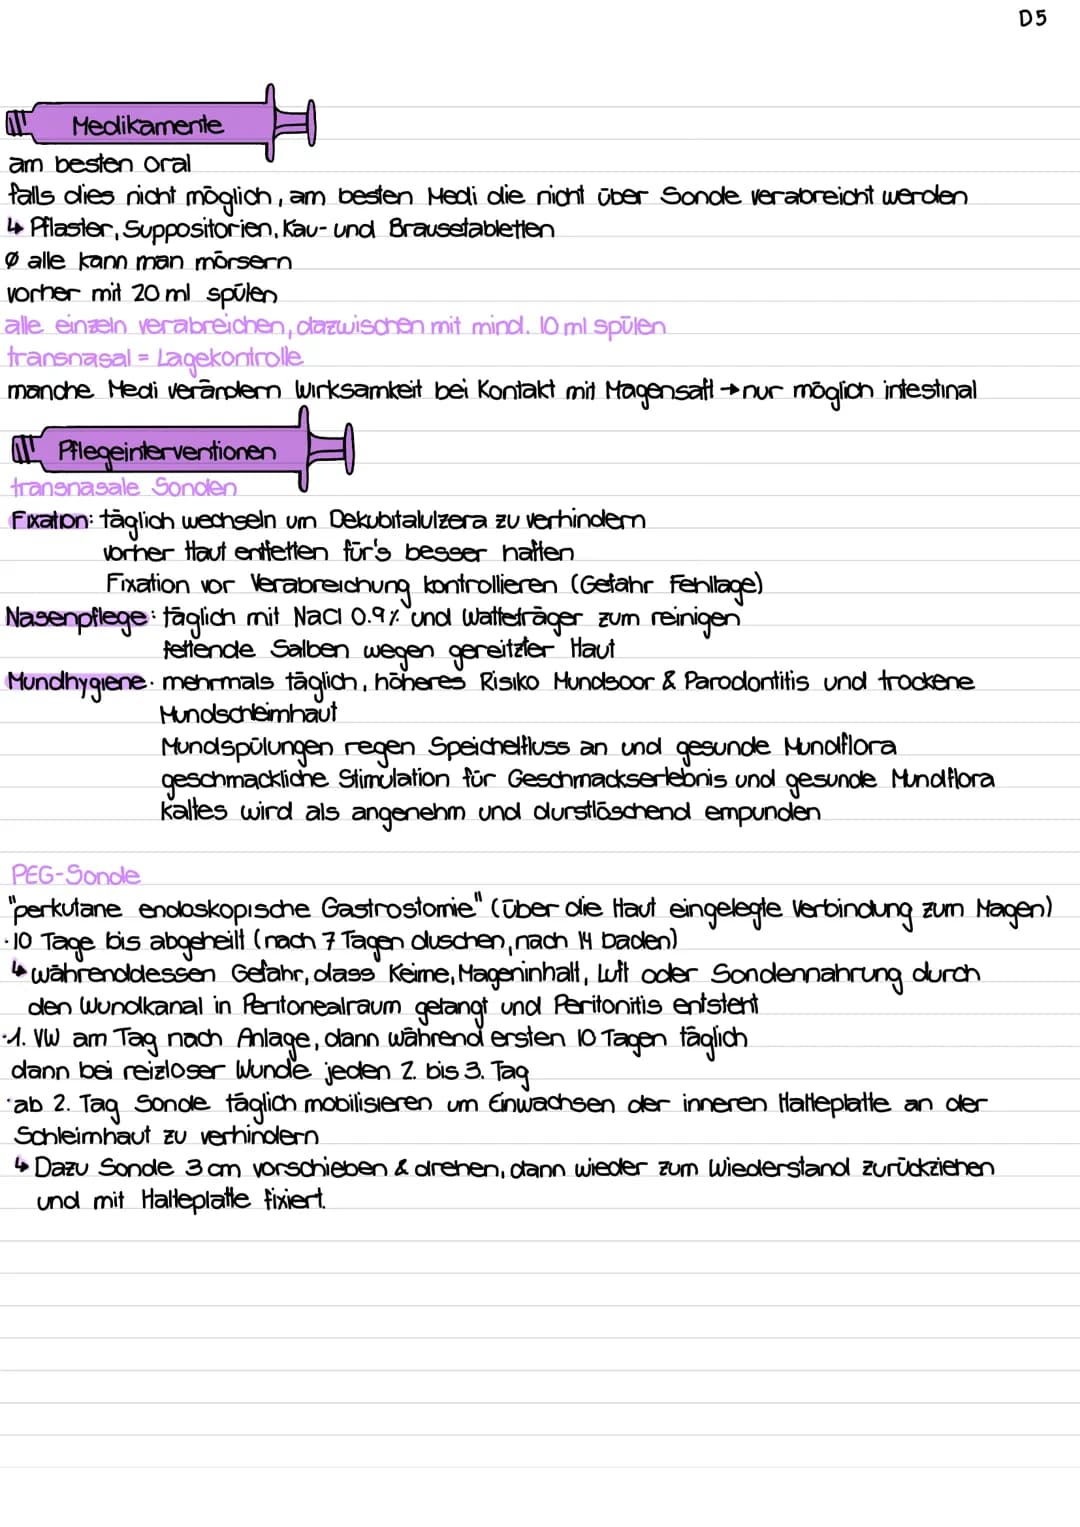 D5
Medikamente
am besten oral
falls dies nicht möglich, am besten Medi die nicht über Sonde verabreicht werden
↳ Pflaster, Suppositorien, Kau- und Brausetabletten
Ø alle kann man mörsern
vorher mit 20 ml spülen
alle einzeln verabreichen, dazwischen mit mind. 10 ml spülen
transnasal = Lagekontrolle
manche Medi verändern Wirksamkeit bei Kontakt mit Magensaft → nur möglich intestinal
Pflegeinterventionen
transnasale Sonden
Fixation: täglich wechseln um Dekubitalulzera zu verhindern
vorher Haut entfetten für's besser haften
Fixation vor Verabreichung kontrollieren (Gefahr Fehllage)
Nasenpflege: täglich mit NaCl 0.9% und Watteträger zum reinigen
fettende Salben wegen gereitzter Haut
Mundhygiene: mehrmals täglich, höheres Risiko Mundsoor & Parodontitis und trockene
Mundschleimhaut
Mundspülungen regen Speichelfluss an und gesunde Mundflora
geschmackliche Stimulation für Geschmackserlebnis und gesunde Mundflora
kaltes wird als angenehm und durstlöschend empunden
PEG-Sonde
"perkutane endoskopische Gastrostomie" (über die Haut eingelegte Verbindung zum Magen)
· 10 Tage bis abgeheilt (nach 7 Tagen duschen, nach 14 baden)
↳ währenddessen Gefahr, dass Keime, Mageninhalt, Luft oder Sondennahrung durch
den Wundkanal in Peritonealraum gelangt und Peritonitis entsteht
· 1. VW am Tag nach Anlage, dann während ersten 10 Tagen täglich
dann bei reizloser Wunde jeden 2. bis 3. Tag
· ab 2. Tag Sonde täglich mobilisieren um Einwachsen der inneren Halteplatte an der
Schleimhaut zu verhindern
↳ Dazu Sonde 3 cm vorschieben & drehen, dann wieder zum Wiederstand zurückziehen
und mit Halteplatte fixiert.